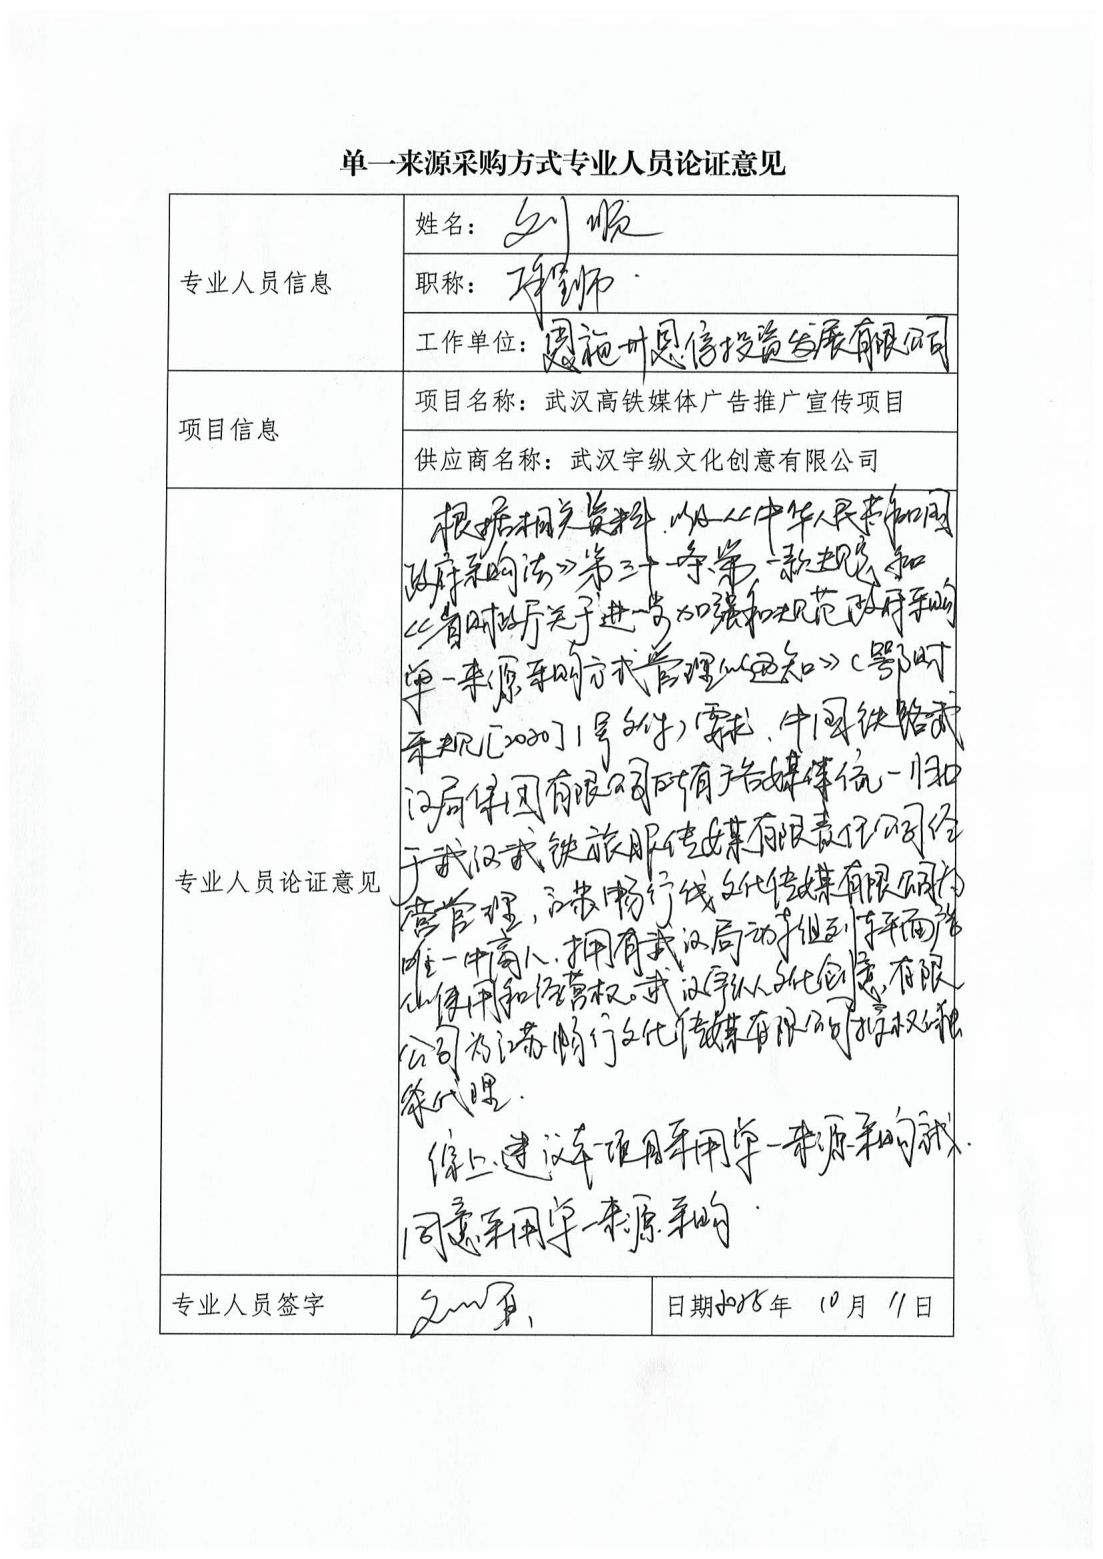 单一来源采购方式专业人员论证意见
专业人员信息
姓名：刘顺
职称：工程师
工作单位：恩施州恩信投资发展有限公司
项目信息
项目名称：武汉高铁媒体广告推广宣传项目
供应商名称：武汉宇纵文化创意有限公司
专业人员论证意见
根据相关资料，以及《中华人民共和国
政府采购法》第三十一条第一款规定和
《省财政厅关于进一步加强和规范政府采购
单一来源采购方式管理的通知》（鄂财
采规〔2020〕1号文件）要求，中国铁路武
汉局集团有限公司所有广告媒体统一归口
于武汉武铁旅服传媒有限责任公司经
营管理，江苏畅行线文化传媒有限公司为
唯一中商人，拥有武汉局动车组列车平面广告
的使用和经营权。武汉宇纵文化创意有限
公司为江苏畅行文化传媒有限公司授权的独
家代理.
综上，建议本项目采用单一来源采购方式.
同意采用单一来源采购.
专业人员签字
刘顺
日期2025年 10月 11日